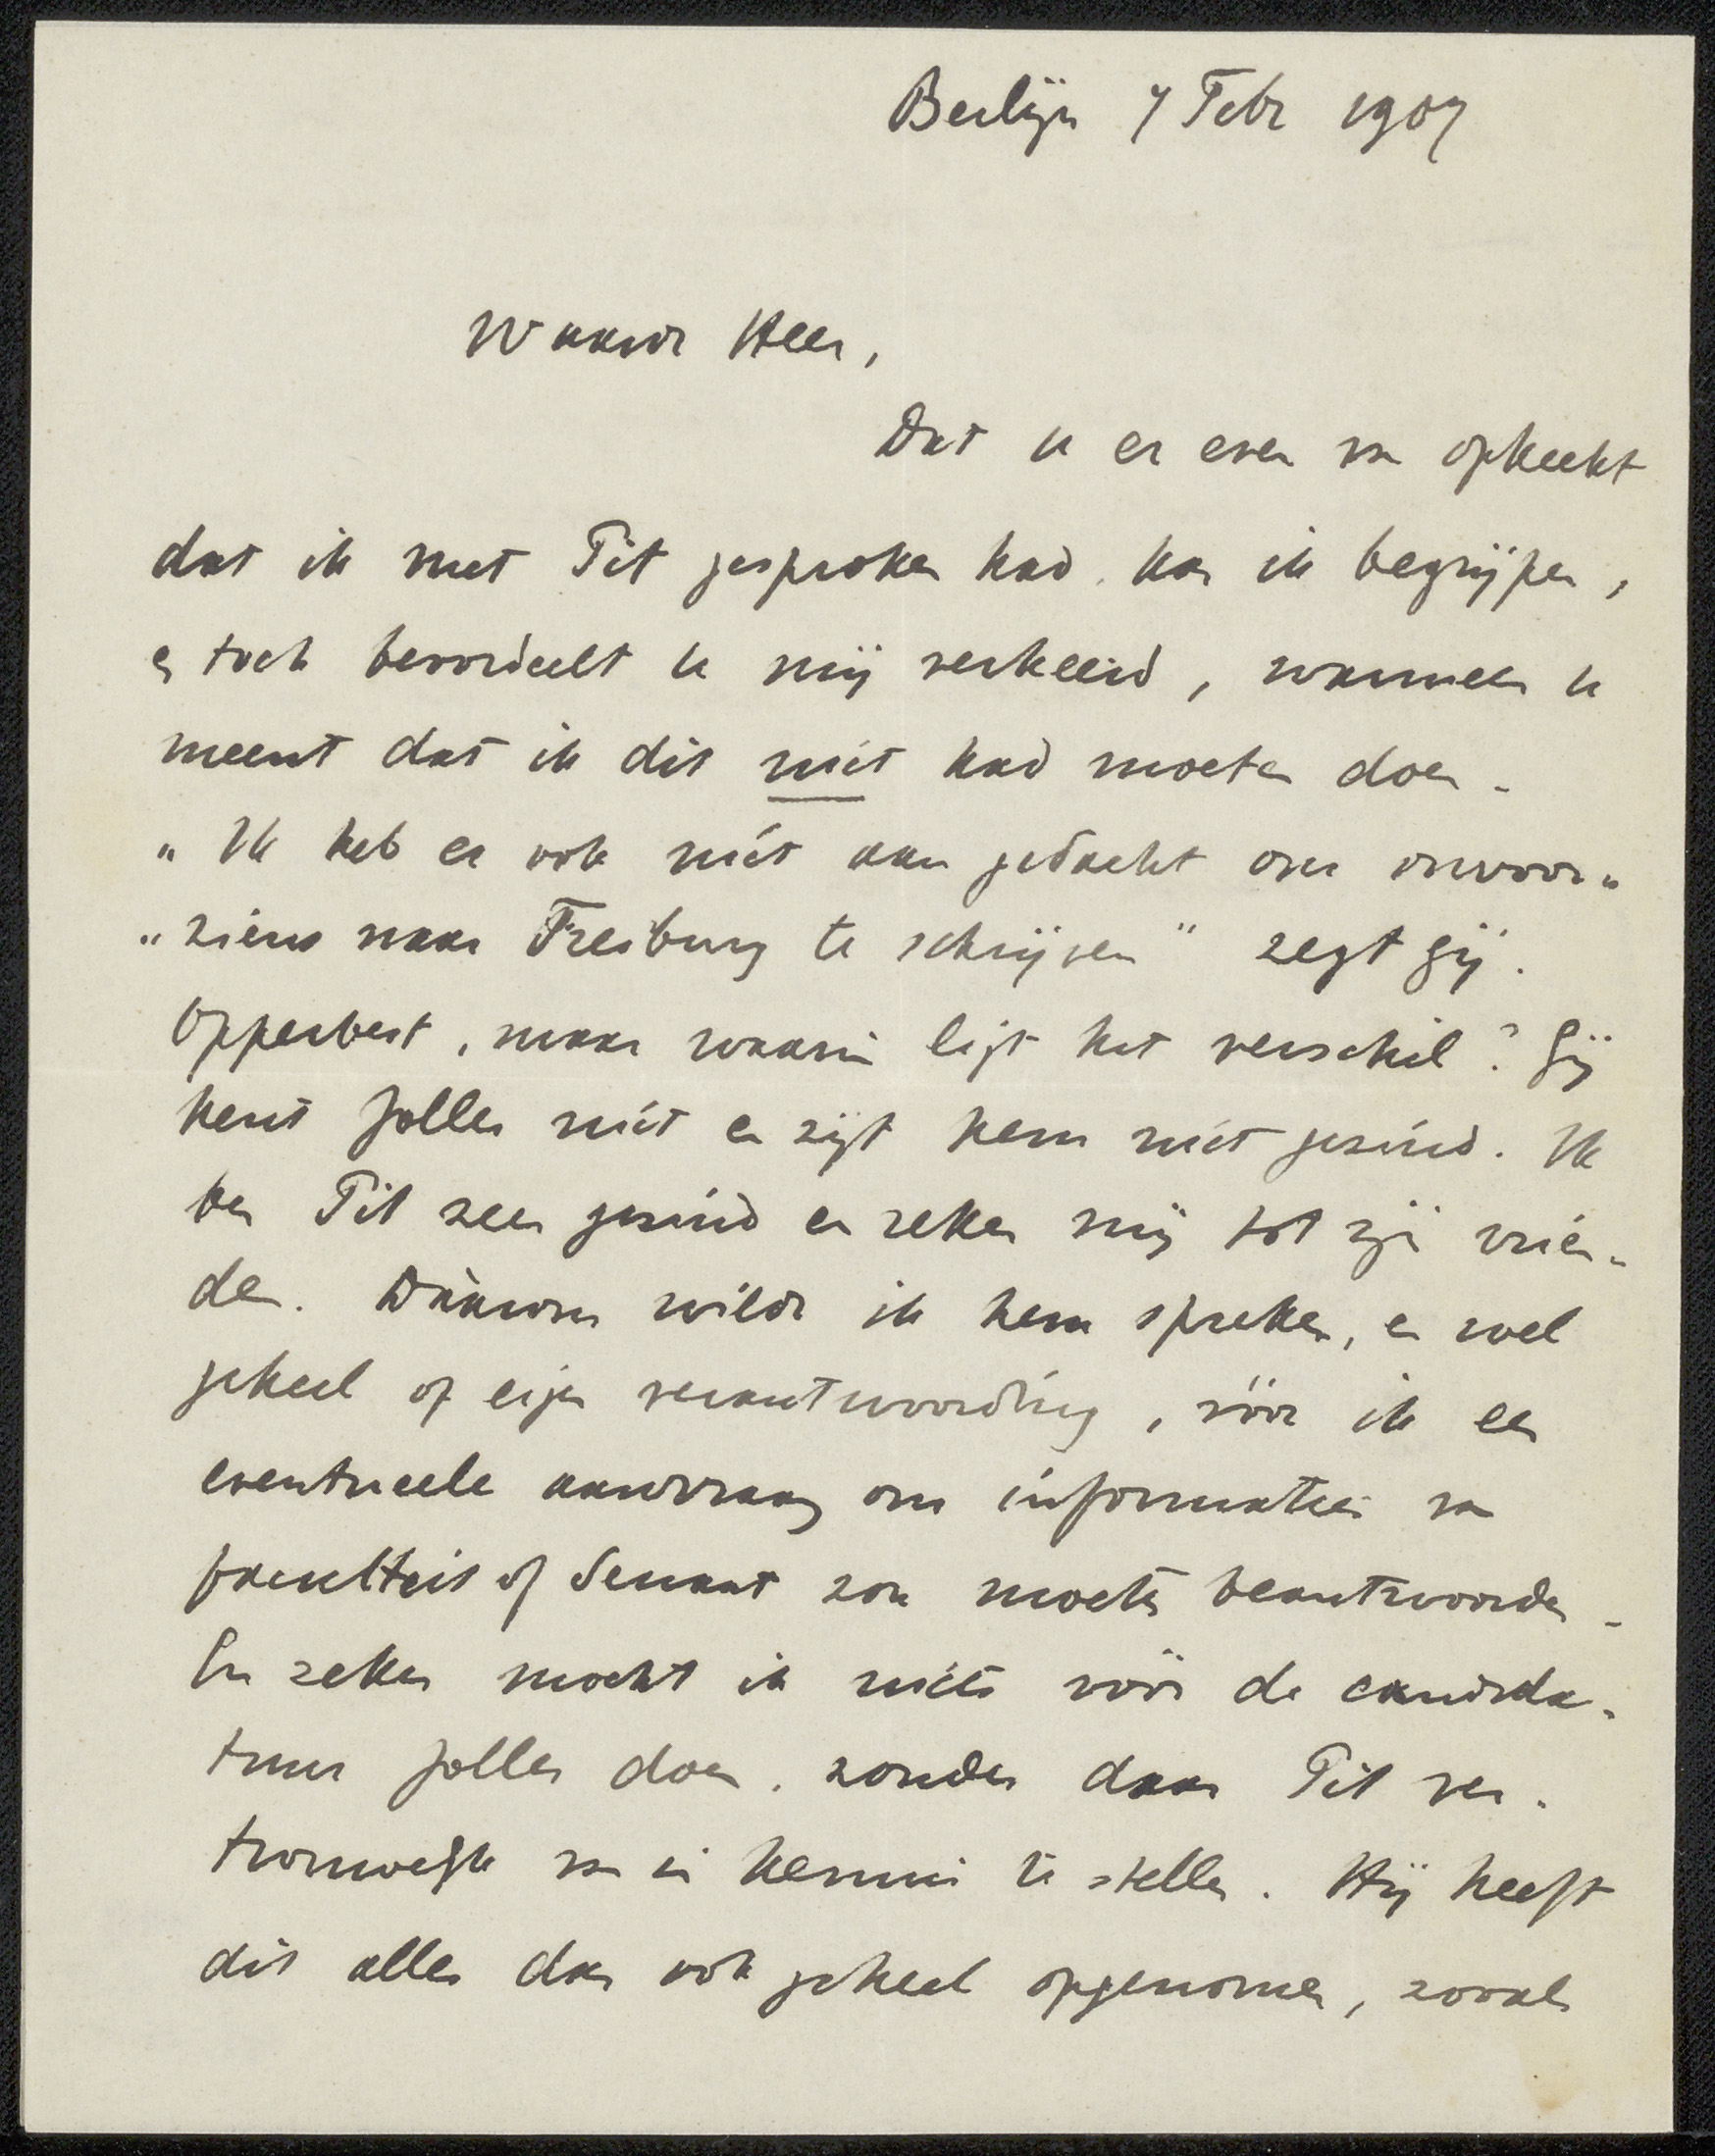 Berlijn 7 Febr 1907
Waarde Heer,
Dat u er even van opkeekt
dat ik met Pit gesproken had, kan ik begrijpen,
en toch beoordeelt u mij verkeerd, wanneer u
meent dat ik dit niet had moeten doen.
„Ik heb er ook niet aan gedacht om onvoor-„
„ziens naar Freiburg te schrijven" zegt gij.
Opperbest, maar waarin ligt het verschil? Gij
kent Jolles niet en zijt hem niet gezind. Ik
ben Pit zeer gezind en reken mij tot zijn vrien-
den. Dààrom wilde ik hem spreken, en wel
geheel op eigen verantwoording, vóór ik een
eventueele aanvraag om informaties van
faculteit of Senaat zou moeten beantwoorden.
En zeker mocht ik niets vóór de candida-
tuur Jolles doen, zonder daar Pit ver-
trouwelijk van in kennis te stellen. Hij heeft
dit alles dan ook geheel opgenomen, zooals